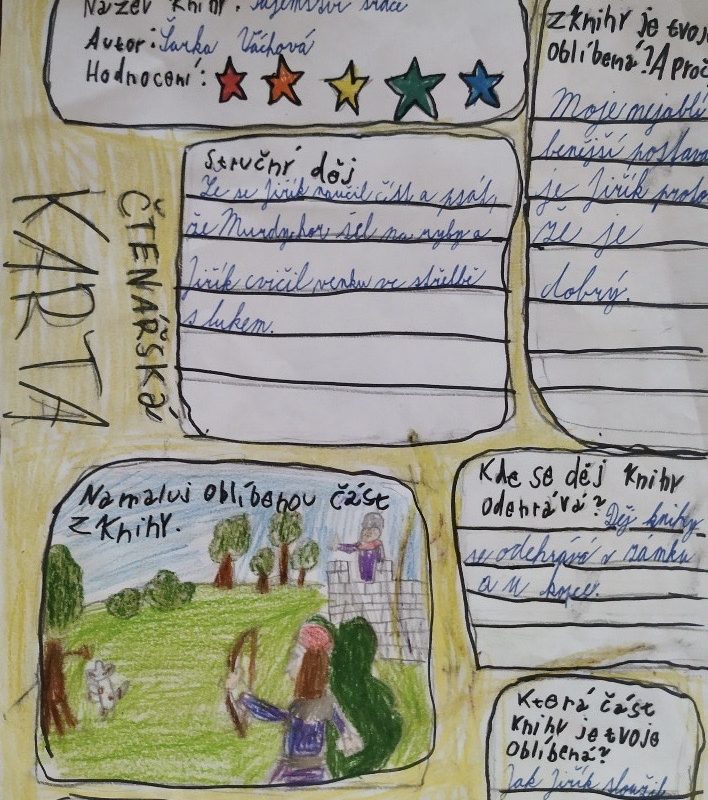 Název knihy: Tajemství srdce
Autor: Šárka Váchová
Hodnocení:
z knihy je tvoje
oblíbená? A proč
Moje nejoblí
benější postava
je Jiřík proto
že je
dobrý.
ČTENÁŘSKÁ
KARTA
Stručný děj
Že se Jiřík naučil číst a psát,
že šel na ryby a
Jiřík cvičil venku ve střelbě
s lukem.
Namaluj oblíbenou část
z knihy.
Kde se děj knihy
odehrává? Děj knihy
se odehrává v zámku
a u kopce.
Která část
knihy je tvoje
oblíbená?
Jak Jiřík sloužil